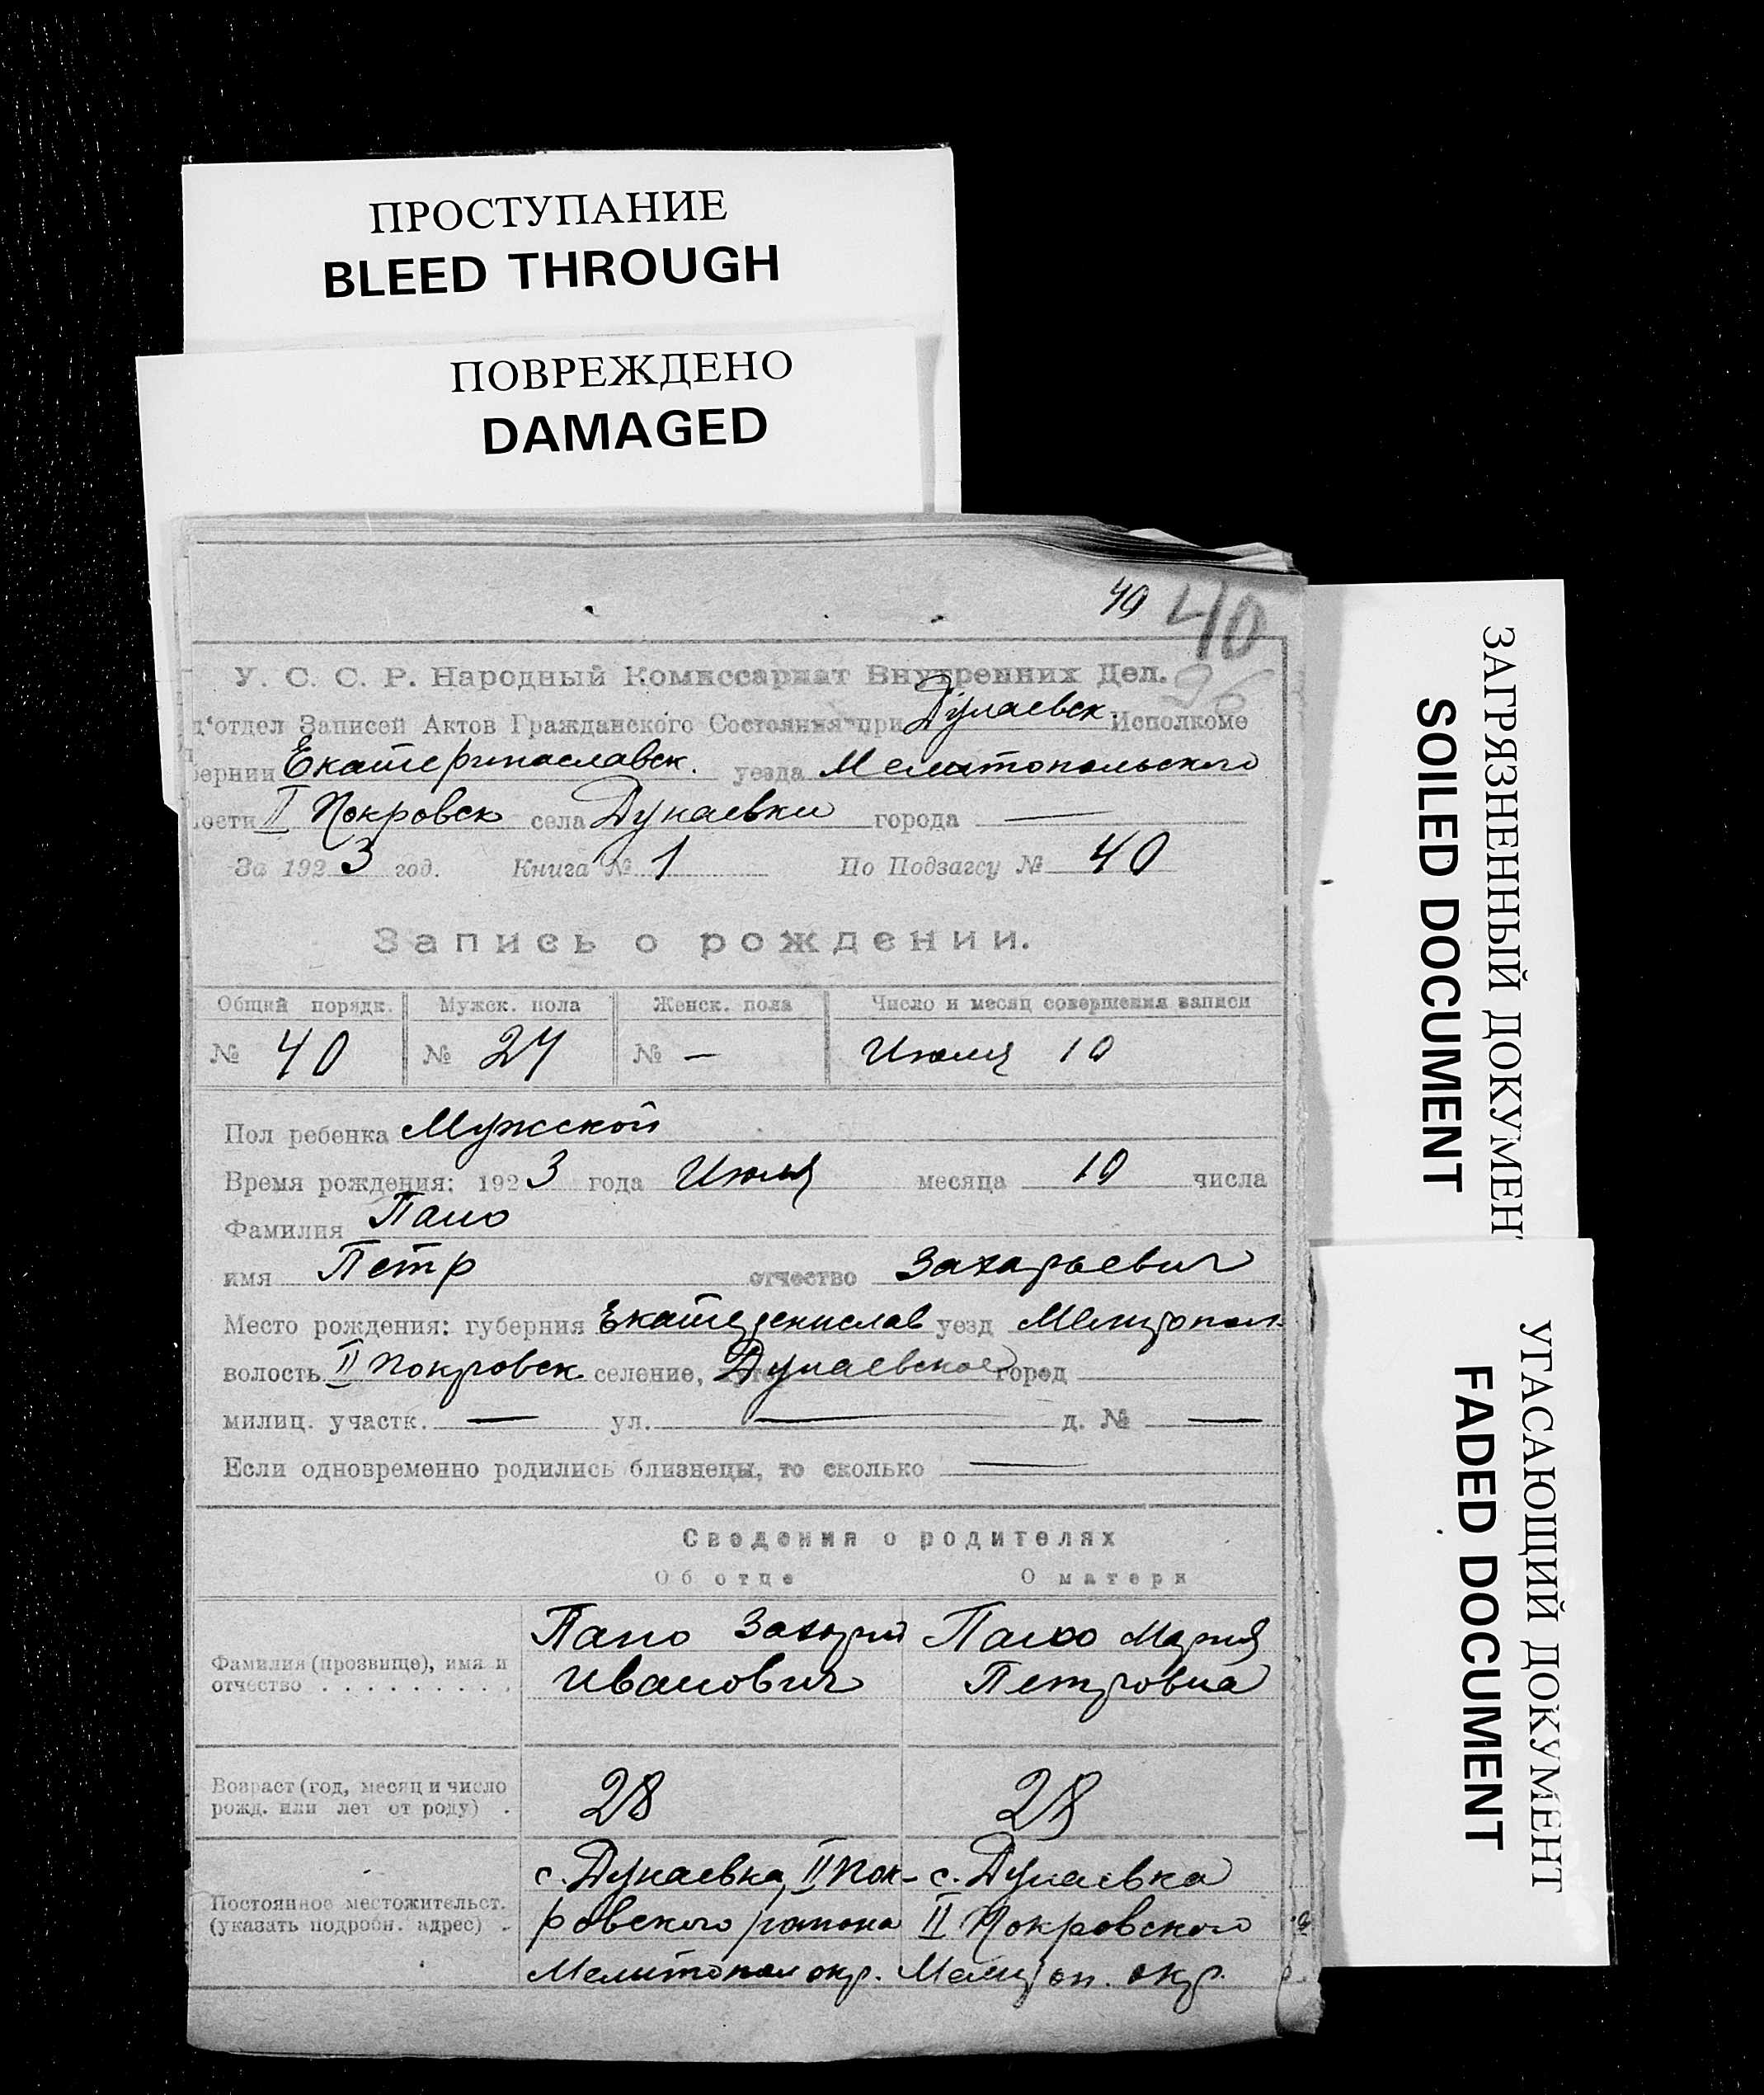 ПРОСТУПАНИЕ
BLEED THROUGH
ПОВРЕЖДЕНО
DAMAGED
40 40
96
У. С. С. Р. Народный Комиссариат Внутренних Дел.
д'отдел Записей Актов Гражданского Состояния при Дунаевск. Исполкоме
бернии Екатеринославск. уезда Мелитопольского
лости II Покровск села Дунаевки города —
За 1923 год. Книга № 1 По Подзагсу № 40
Запись о рождении.
Общий порядк. Мужск. пола Женск. пола Число и месяц совершения записи
№ 40 № 24 № — Июля 10
Пол ребенка Мужской
Время рождения: 1923 года Июля месяца 10 числа
Фамилия Пано
имя Петр отчество Захарьевич
Место рождения: губерния Екатеринослав уезд Мелитопол
волость II Покровск селение, Дунаевское город
милиц. участк. — ул. — д. № —
Если одновременно родились близнецы, то сколько —
Сведения о родителях
Об отце О матери
Фамилия (прозвище), имя и отчество . . . . . . . . .
Пано Захарий
Иванович
Пано Мария
Петровна
Возраст (год, месяц и число
рожд. или лет от роду) .
28 28
Постоянное местожительст.
(указать подробн. адрес) .
с. Дунаевка II Пок-
ровского района
Мелитопол окр.
с. Дунаевка
II Покровского
Мелитоп. окр.
ЗАГРЯЗНЕННЫЙ ДОКУМЕН
SOILED DOCUMENT
УГАСАЮЩИЙ ДОКУМЕНТ
FADED DOCUMENT